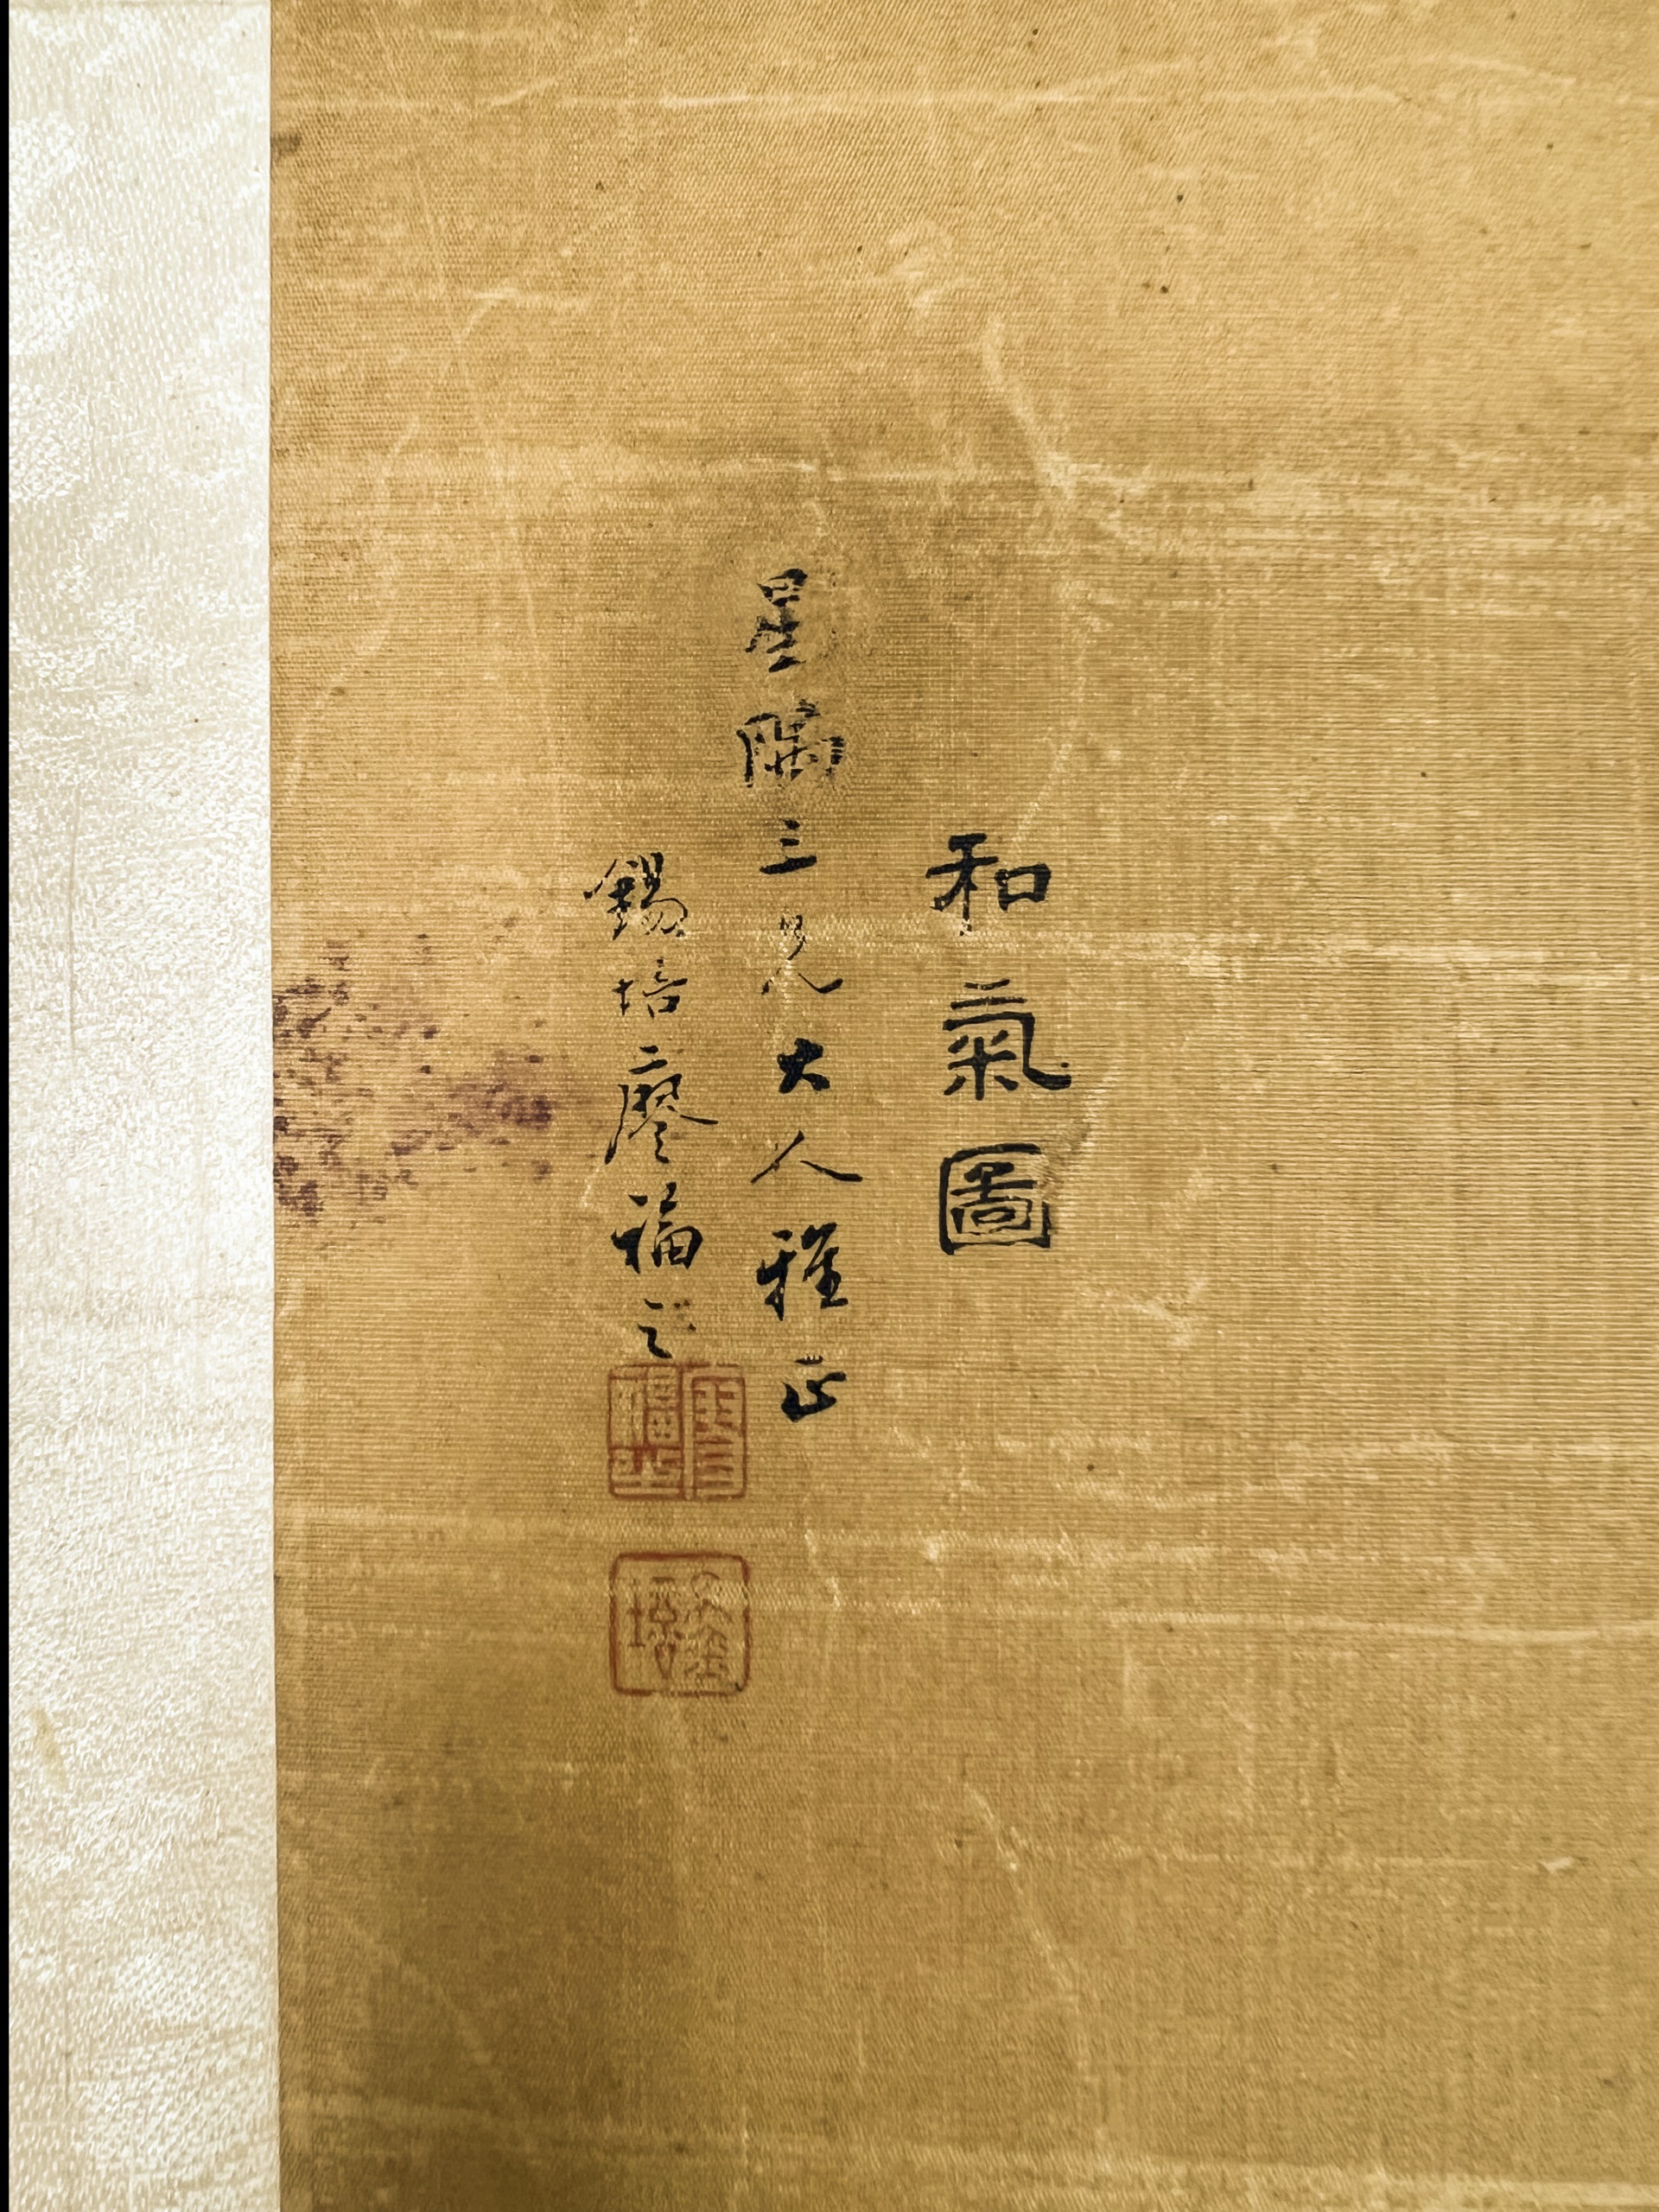 和氣圖
星隅三兄大人雅正
錫培廖福之